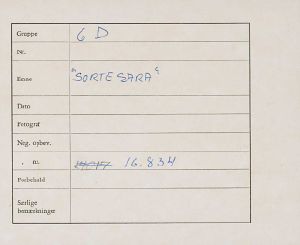 Gruppe 6 D
Nr.
Emne "SORTE SARA"
Dato
Fotograf
Neg. opbev.
" m. 16.834
Forbehold
Særlige
bemærkninger